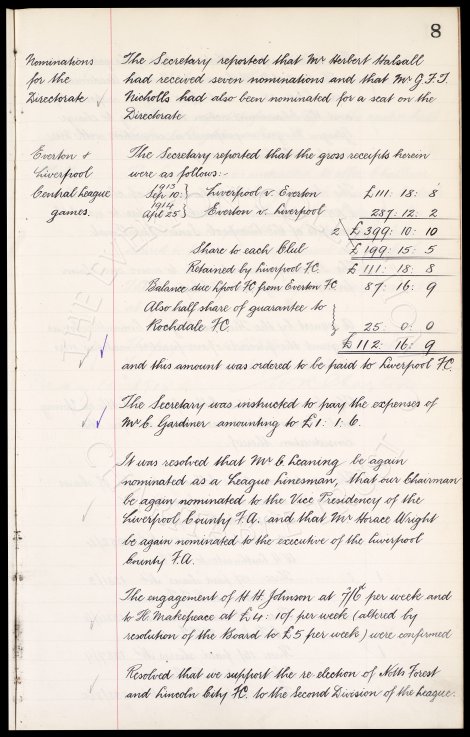 8
Nominations
for the
Directorate
The Secretary reported that Mr Herbert Halsall
had received seven nominations and that Mr G.F.T.
Nicholls had also been nominated for a seat on the
Directorate
Everton &
Liverpool
Central League
games.
The Secretary reported that the gross receipts herein
were as follows:-
1913
Sep 10: } Liverpool v. Everton £111: 18: 8
1914
Apl 25 } Everton v. Liverpool 287: 12: 2
2 £399: 10: 10
Share to each Club £199: 15: 5
Retained by Liverpool FC. £111: 18: 8
Balance due L'pool FC from Everton FC 87: 16: 9
Also half share of guarantee to
Rochdale FC. } 25: 0: 0
£112: 16: 9
and this amount was ordered to be paid to Liverpool FC.
The Secretary was instructed to pay the expenses of
Mr C. Gardner amounting to £1: 1: 6.
It was resolved that Mr C Leaning be again
nominated as a League Linesman, that our Chairman
be again nominated to the Vice Presidency of the
Liverpool County F.A. and that Mr Horace Wright
be again nominated to the executive of the Liverpool
County F.A.
The engagement of H H Johnson at 7/6 per week and
to H. Makepeace at £4: 10/ per week (altered by
resolution of the Board to £5 per week) were confirmed
Resolved that we support the re election of Notts Forest
and Lincoln City FC. to the Second Division of the League.